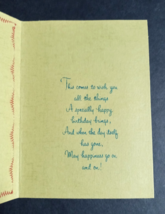 This comes to wish you
all the things
A specially happy
birthday brings,
And when the day itself
has gone,
May happiness go on
and on!